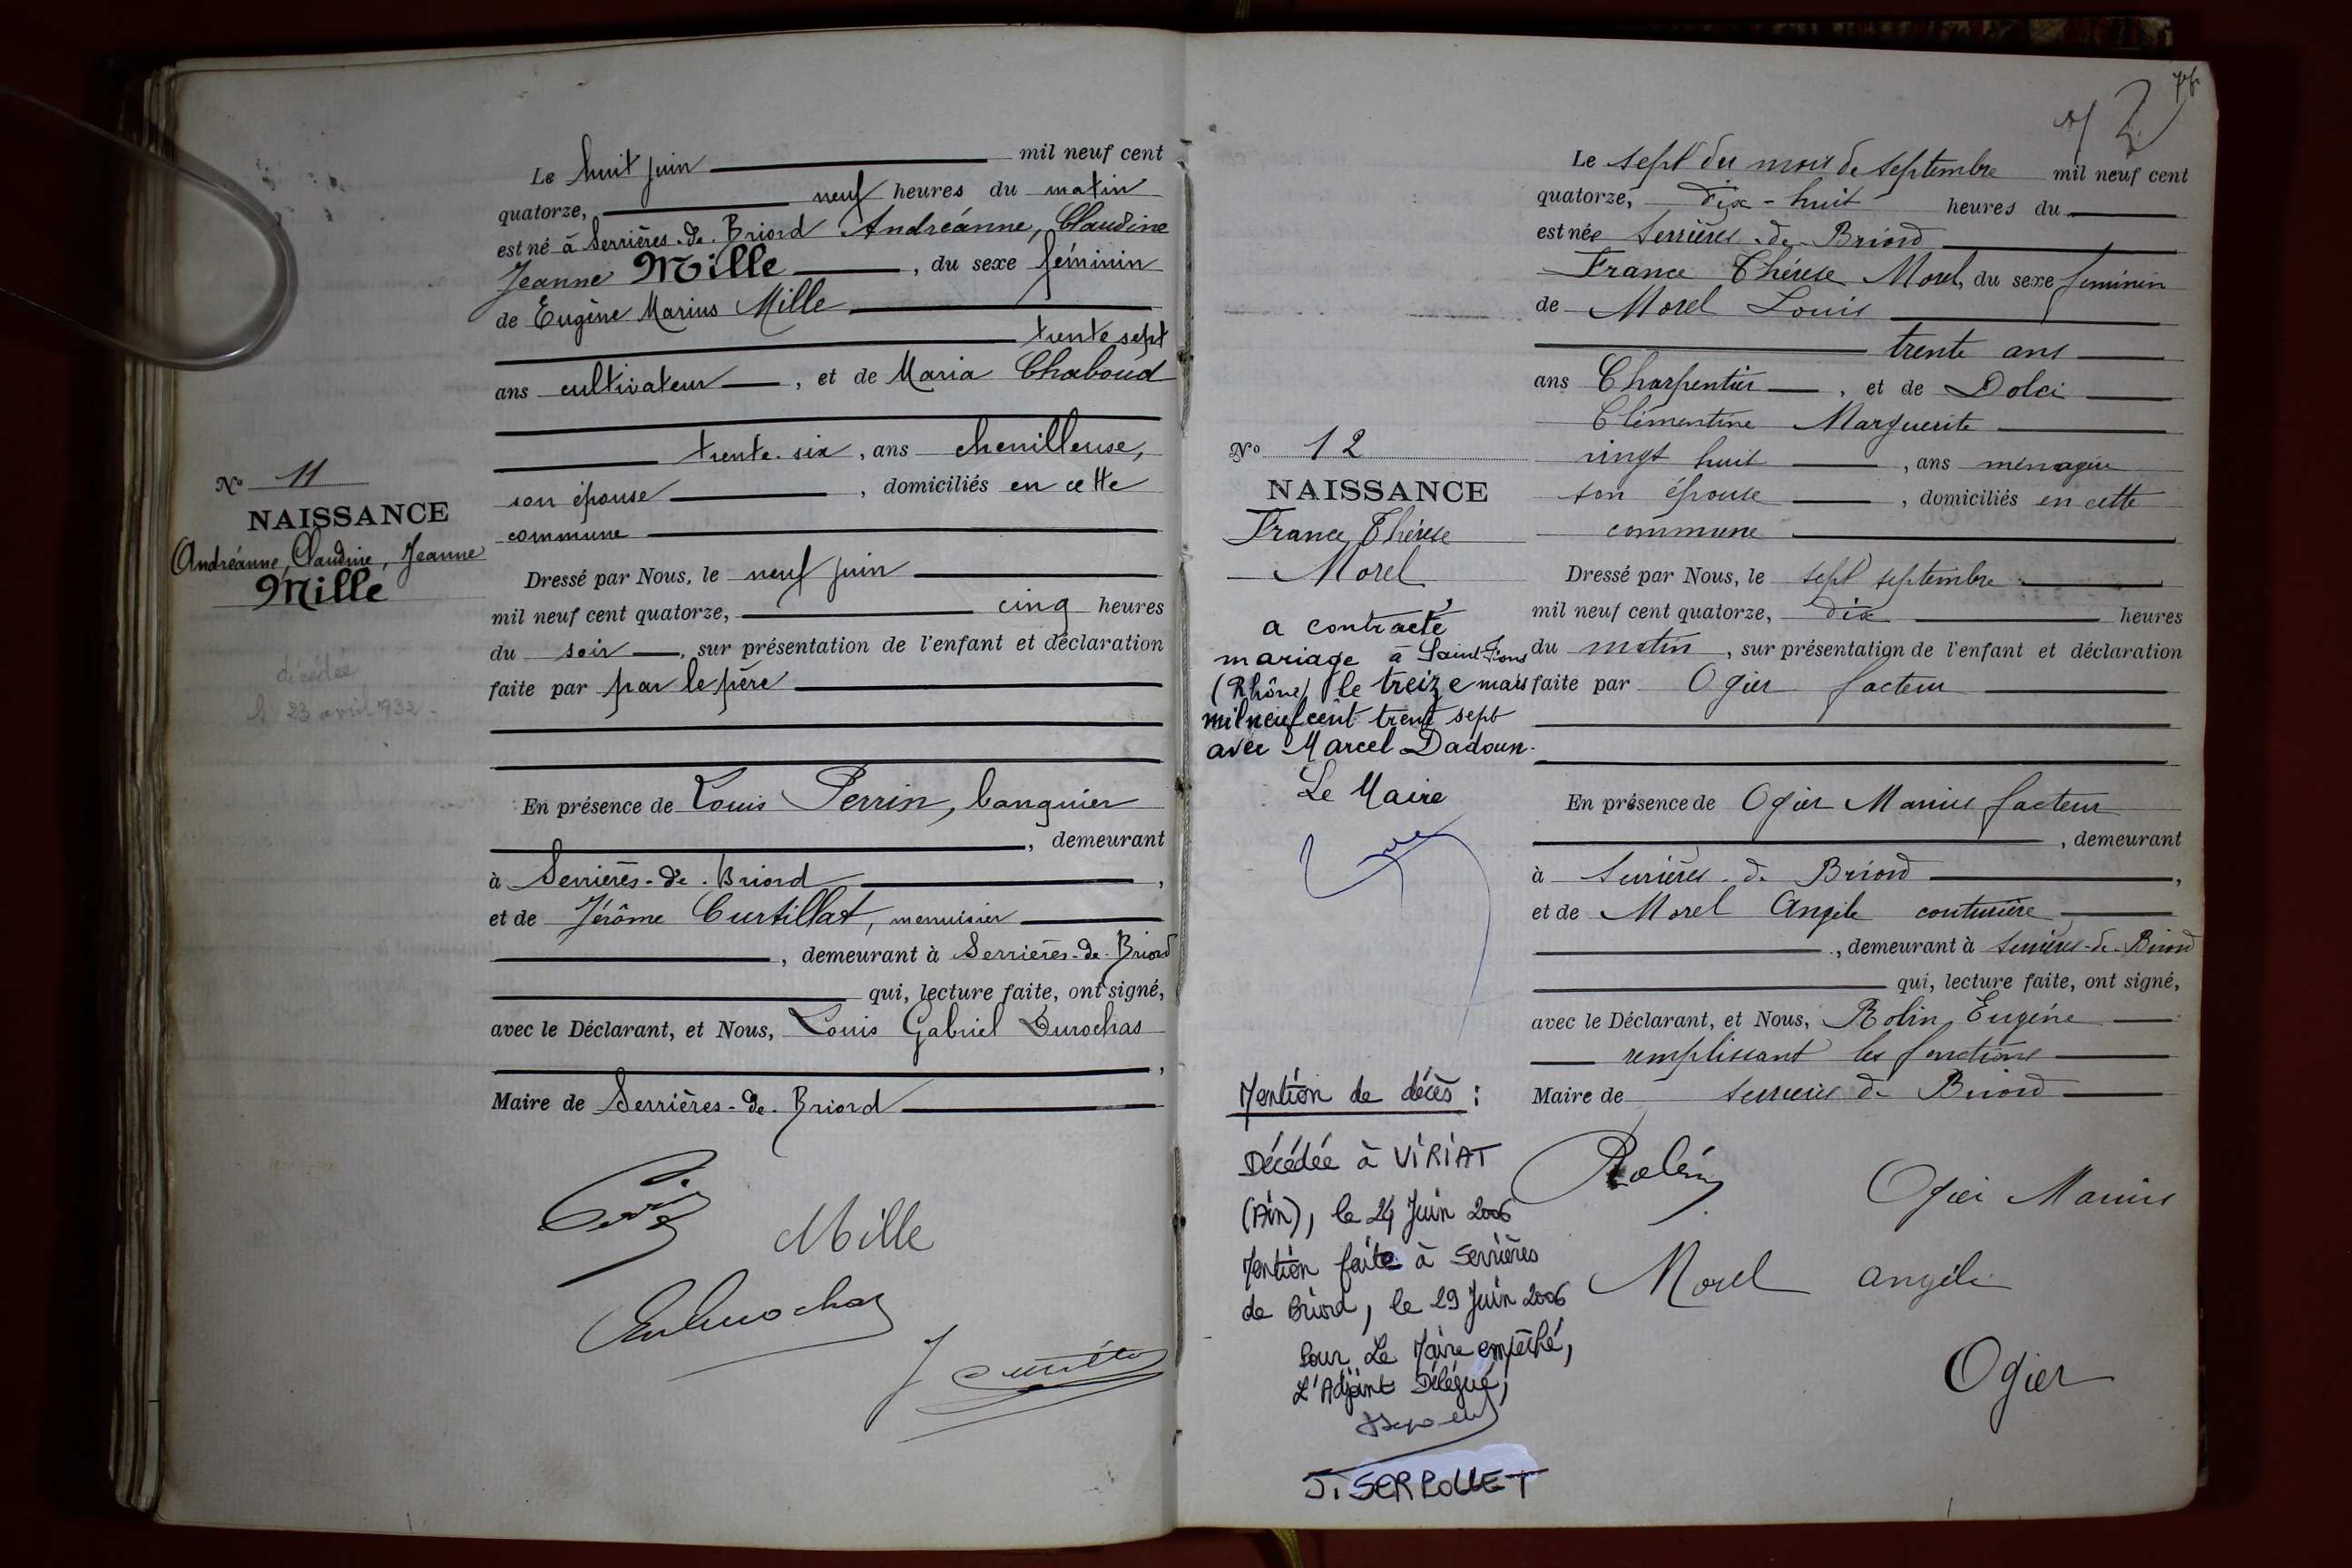 Le huit juin mil neuf cent
quatorze, neuf heures du matin
est né à Serrières-de-Briord Andréanne, Claudine
Jeanne Mille, du sexe féminin
de Eugène Marius Mille
trente sept
ans cultivateur, et de Maria Chaboud
trente-six, ans chenilleuse,
son épouse, domiciliés en cette
commune
No 11
NAISSANCE
Andréanne, Claudine, Jeanne
Mille
décédée
le 23 avril 1932-
Dressé par Nous, le neuf juin
mil neuf cent quatorze, cinq heures
du soir, sur présentation de l'enfant et déclaration
faite par par le père
En présence de Louis Perrin, banquier
, demeurant
à Serrières-de-Briord,
et de Jérôme Curtillat, menuisier
, demeurant à Serrières-de-Briord
qui, lecture faite, ont signé,
avec le Déclarant, et Nous, Louis Gabriel Durochas
,
Maire de Serrières-de-Briord
Mille
12
Le sept du mois de septembre mil neuf cent
quatorze, dix-huit heures du
est née Serrières-de-Briord
France Thérèse Morel, du sexe feminin
de Morel Louis
trente ans
ans Charpentier, et de Dolci
Clémentine Marguerite
vingt huit, ans ménagère
son épouse, domiciliés en cette
commune
No 12
NAISSANCE
France Thérèse
Morel
a contracté
mariage à Saint-Fons
(Rhône) le treize mars
mil neuf cent trente sept
avec Marcel Dadoun.
Le Maire
Dressé par Nous, le sept septembre
mil neuf cent quatorze, dix heures
du matin, sur présentation de l'enfant et déclaration
faite par Ogier facteur
En présence de Ogier Marius facteur
, demeurant
à Serrières-de-Briord,
et de Morel Angèle couturière
, demeurant à Serrières-de-Briord
qui, lecture faite, ont signé,
avec le Déclarant, et Nous, Rolin Eugène
remplissant les fonctions
Maire de Serrières de Briord
Mention de décès :
Décédée à VIRIAT
(Ain), le 24 Juin 2006
Mention faite à Serrières
de Briord, le 29 Juin 2006
Pour Le Maire empêché,
L'Adjoint Délégué,
J. SERPOLLET
Rolin
Ogier Marius
Morel Angèle
Ogier